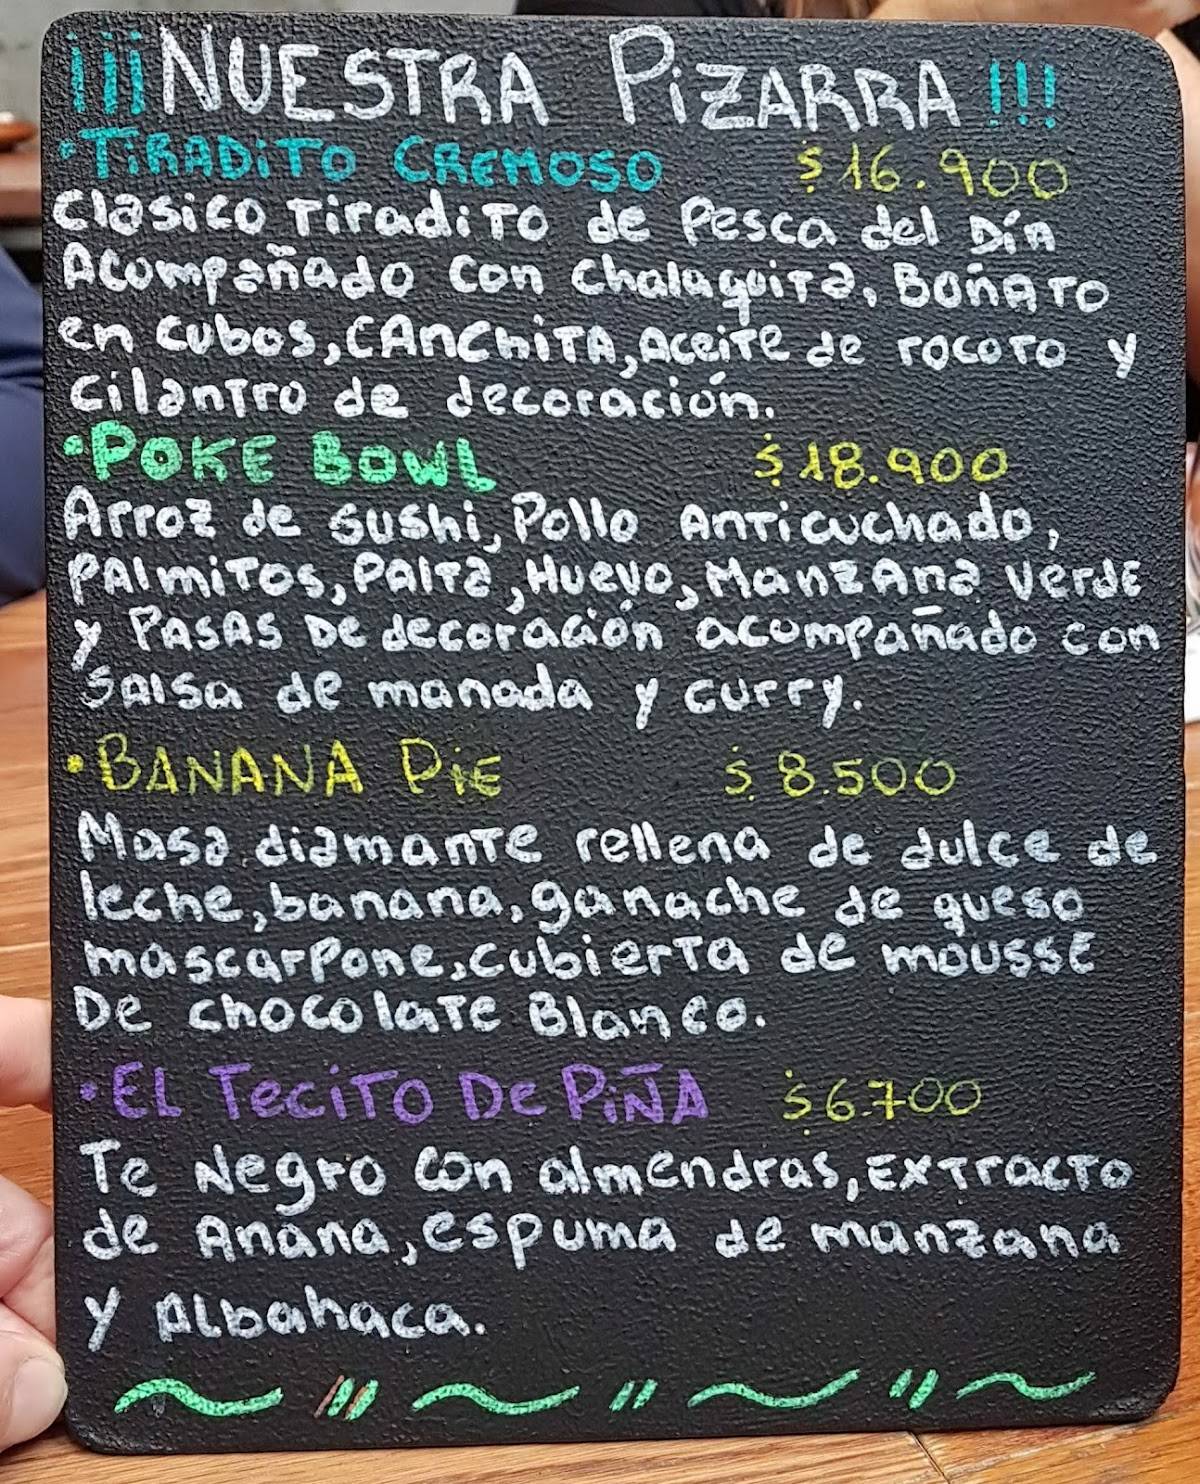 ¡¡¡NUESTRA PiZARRA!!!
•TiRADiTO CREMOSO $16.900
Clasico Tiradito de Pesca del Día
Acompañado con Chalaquita, Boñato
en cubos, CAnChiTA, Aceite de rocoto y
Cilantro de decoración.
•POKE BOWL $18.900
Arroz de sushi, Pollo Anticuchado,
PAlmitos, Palta, Huevo, Manzana Verde
y PASAS De decoración acompañado con
Salsa de manada y curry.
•BANANA PiE $8.500
Masa diamante rellena de dulce de
leche, banana, ganache de queso
mascarpone, cubierta de mousse
De chocolate Blanco.
•EL TeciTO De PiÑA $6.700
Te Negro con almendras, Extracto
de Anana, espuma de manzana
y Albahaca.